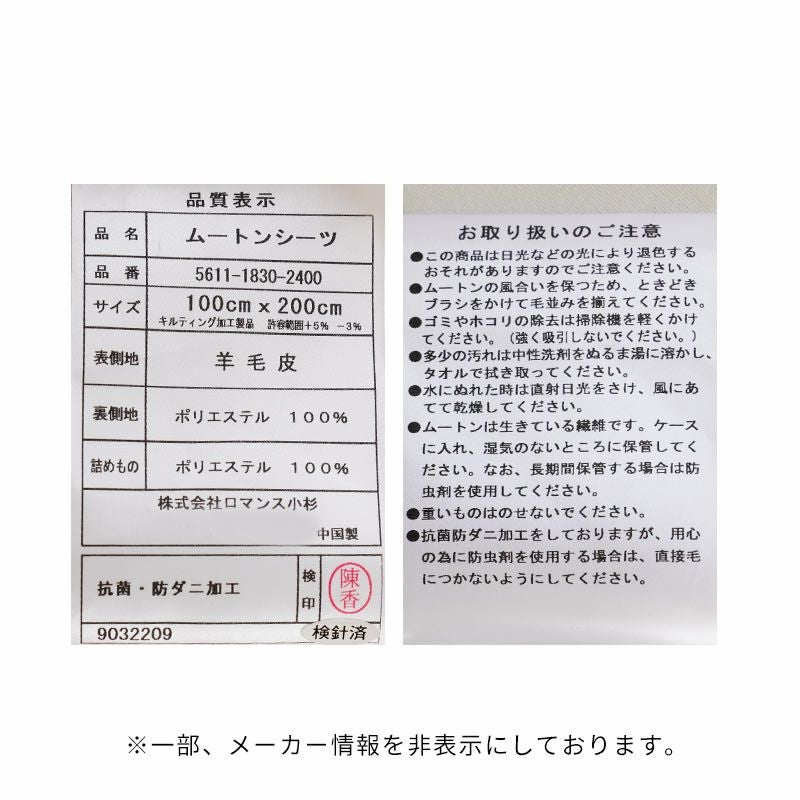 品質表示
品 名 ムートンシーツ
品 番 5611-1830-2400
サイズ 100cm x 200cm
キルティング加工製品 許容範囲+5% -3%
表側地 羊毛皮
裏側地 ポリエステル 100%
詰めもの ポリエステル 100%
株式会社ロマンス小杉
中国製
抗菌・防ダニ加工 検印 陳香
9032209 検針済
お取り扱いのご注意
●この商品は日光などの光により退色する
おそれがありますのでご注意ください。
●ムートンの風合いを保つため、ときどき
ブラシをかけて毛並みを揃えてください。
●ゴミやホコリの除去は掃除機を軽くかけ
てください。(強く吸引しないでください。)
●多少の汚れは中性洗剤をぬるま湯に溶かし、
タオルで拭き取ってください。
●水にぬれた時は直射日光をさけ、風にあ
てて乾燥してください。
●ムートンは生きている繊維です。ケース
に入れ、湿気のないところに保管してく
ださい。なお、長期間保管する場合は防
虫剤を使用してください。
●重いものはのせないでください。
●抗菌防ダニ加工をしておりますが、用心
の為に防虫剤を使用する場合は、直接毛
につかないようにしてください。
※一部、メーカー情報を非表示にしております。